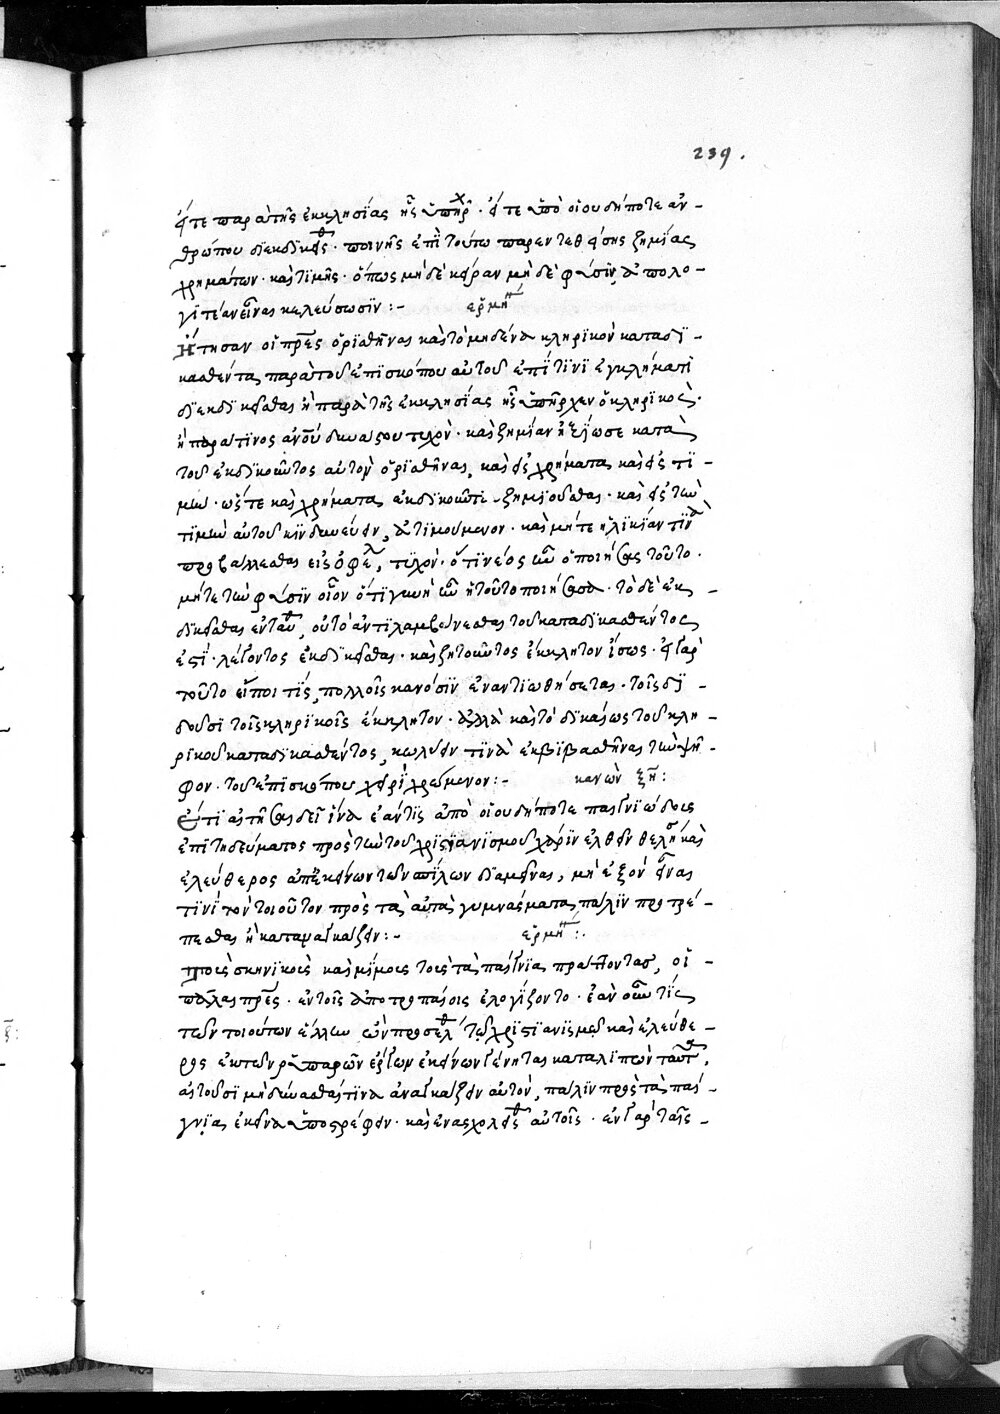 239.
εἴτε παρὰ τῆς ἐκκλησίας ἧς ὑπῆρχ. εἴτε ὑπὸ οἱουδήποτε ἀν-
θρώπου διεκδικεῖσθ. ποινῆς ἐπὶ τούτω παρεντεθείσης ζημίας
χρημάτων. καὶ τιμῆς. ὅπως μηδὲ καιρὰν μηδὲ φύσιν ἀπολο-
γιτέαν εἶναι κελεύσωσιν :- ἑρμη
Ἤτησαν οἱ πρες ὁρισθῆναι καὶ τὸ μηδένα κληρικὸν καταδι-
κασθέντα, παρὰ τοῦ ἐπισκόπου αὐτοῦ ἐπί τινι ἐγκλήματι
διεκδικεῖσθαι ἢ παρὰ τῆς ἐκκλησίας ἧς ὑπῆρχεν ὁ κληρικός.
ἢ παρά τινος ἀνου δυνάστου τυχὸν. καὶ ζημίαν ἠξίωσε κατὰ
τοῦ ἐκδικοῦντος αὐτὸν ὁρισθῆναι, καὶ εἰς χρήματα καὶ εἰς τι-
μὴν. ὥστε καὶ χρήματα ἐκδικοῦντι ζημιοῦσθαι. καὶ εἰς τὴν
τιμὴν αὐτοῦ κινδυνεύειν, ἀτιμούμενον. καὶ μήτε ἡλικίαν τινὰ
προβάλλεσθαι εἰς ὀφελ, τυχὸν. ὅτι νέος ὢν ὁ ποιήσας τοῦτο.
μήτε τὴν φύσιν οἷον ὅτι γυνὴ ὢν ἡ τοῦτο ποιήσασα. τὸ δὲ ἐκ-
δικεῖσθαι ἐνταῦθ, οὐ τὸ ἀντιλαμβάνεσθαι τοῦ καταδικασθέντος
ἐστί. λέγοντος ἐκδικεῖσθαι. καὶ ζητοῦντος ἔκκλητον ἴσως. εἰ γὰρ
τοῦτο εἴποι τίς, πολλοῖς κανόσιν ἐναντιωθήσεται. τοῖς δι-
δοῦσι τοῖς κληρικοῖς ἔκκλητον. ἀλλὰ καὶ τὸ δικαίως τοῦ κλη-
ρικοῦ καταδικασθέντος, κωλύειν τινὰ ἐκβιβασθῆναι τὴν ψῆ-
φον. τοῦ ἐπισκόπου χειρὶ χρώμενον :- κανὼν ξη :
Ἔτι αἰτῆσαι δεῖ ἵνα ἐάν τις ἀπὸ οἱουδήποτε παιγνιώδους
ἐπιτηδεύματος πρὸς τὴν τοῦ χριστιανισμοῦ χάριν ἐλθεῖν θελήση καὶ
ἐλεύθερος ἀπ' ἐκείνων τῶν σπίλων διαμεῖναι, μὴ ἐξὸν εἶναι
τινὶ τὸν τοιοῦτον πρὸς τὰ αὐτὰ γυμνάσματα πάλιν προτρέ-
πεσθαι ἢ καταναγκάζειν :- ἑρμη :.
Τοὺς σκηνικοὺς καὶ μίμους τοὺς τὰ παίγνια πράττοντας, οἱ
πάλαι πρες. ἐν τοῖς ἀποτροπαίοις ἐλογίζοντο. ἐὰν οὖν τίς
τῶν τοιούτων ἕλλην ὢν προσέλθ τῷ χριστιανισμῷ καὶ ἐλεύθε-
ρος ἐκ τῶν ρυπαρῶν ἔργων ἐκείνων γένηται καταλιπὼν ταῦτ,
αἰτοῦσι μὴ δύνασθαί τινα ἀναγκάζειν αὐτὸν, πάλιν πρὸς τὰ παί-
γνια ἐκεῖνα ὑποστρέφειν. καὶ ἐνασχολεῖσθ αὐτοῖς. ἐν γὰρ ταῖς-